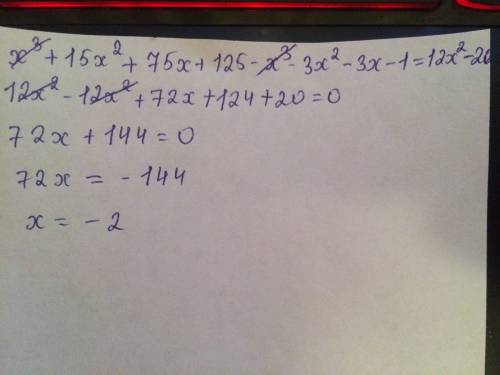 x³ + 15x² + 75x + 125 - x³ - 3x² - 3x - 1 = 12x² - 20
12x² - 12x² + 72x + 124 + 20 = 0
72x + 144 = 0
72x = - 144
x = - 2